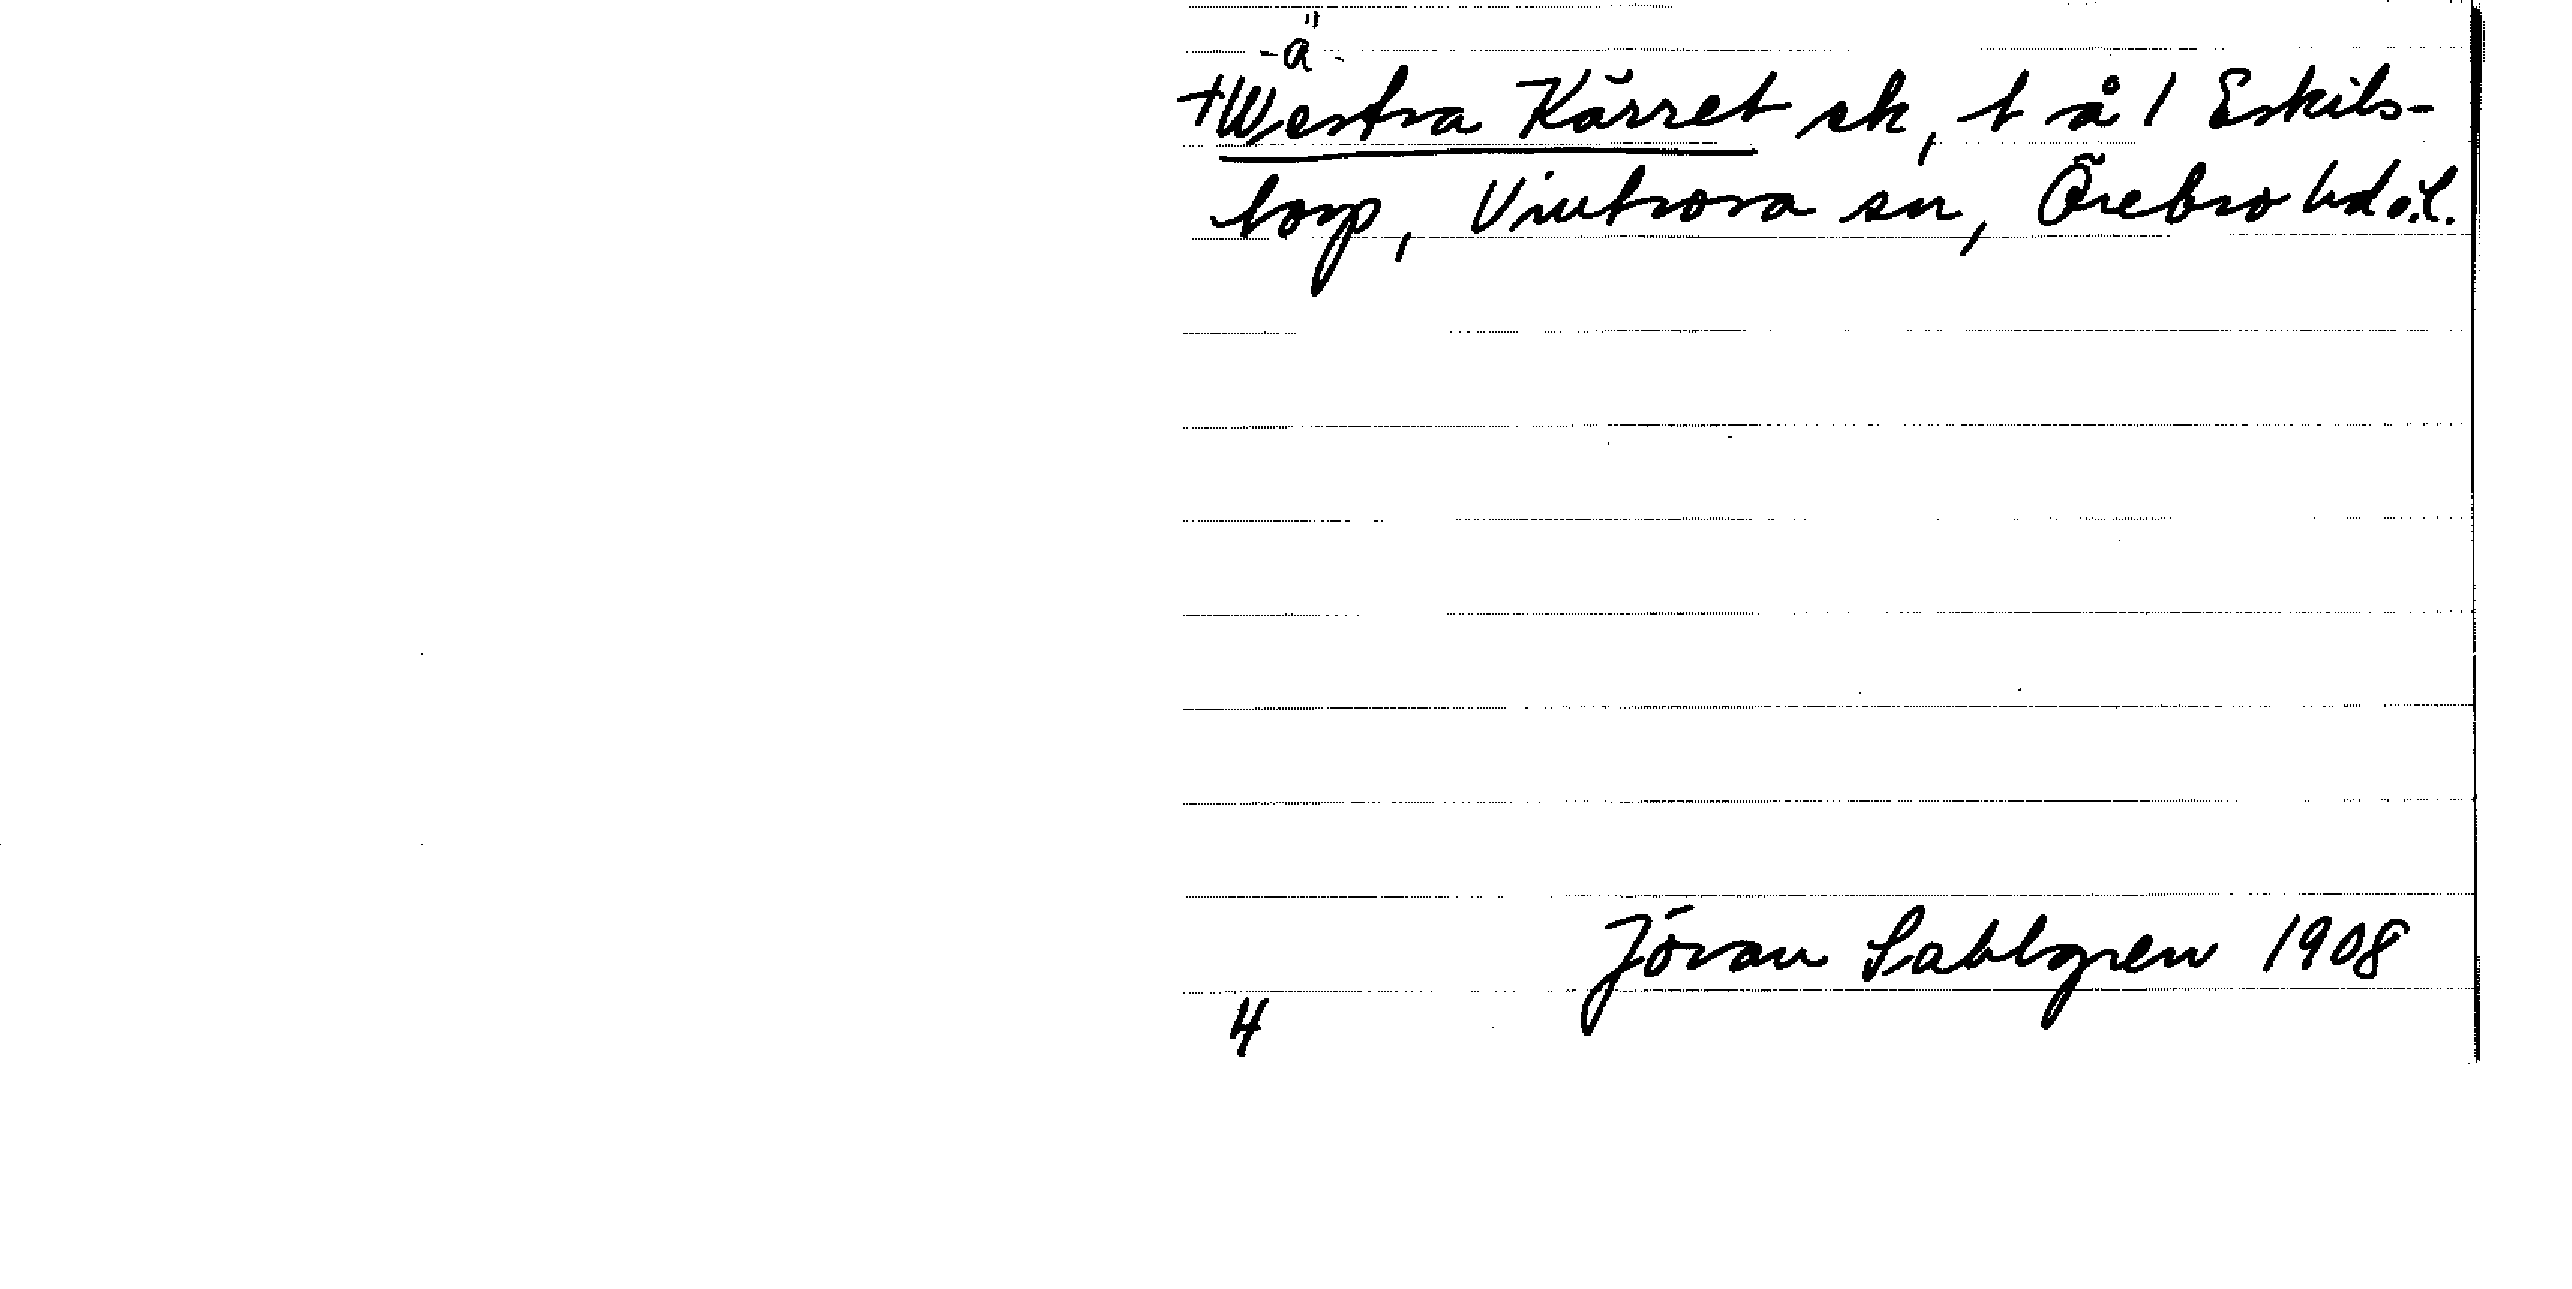 -ä-
+Westra Kärret sk, t å 1 Eskils-
torp, Vintrosa sn, Örebro hd ö.l.
Jöran Sahlgren 1908
4